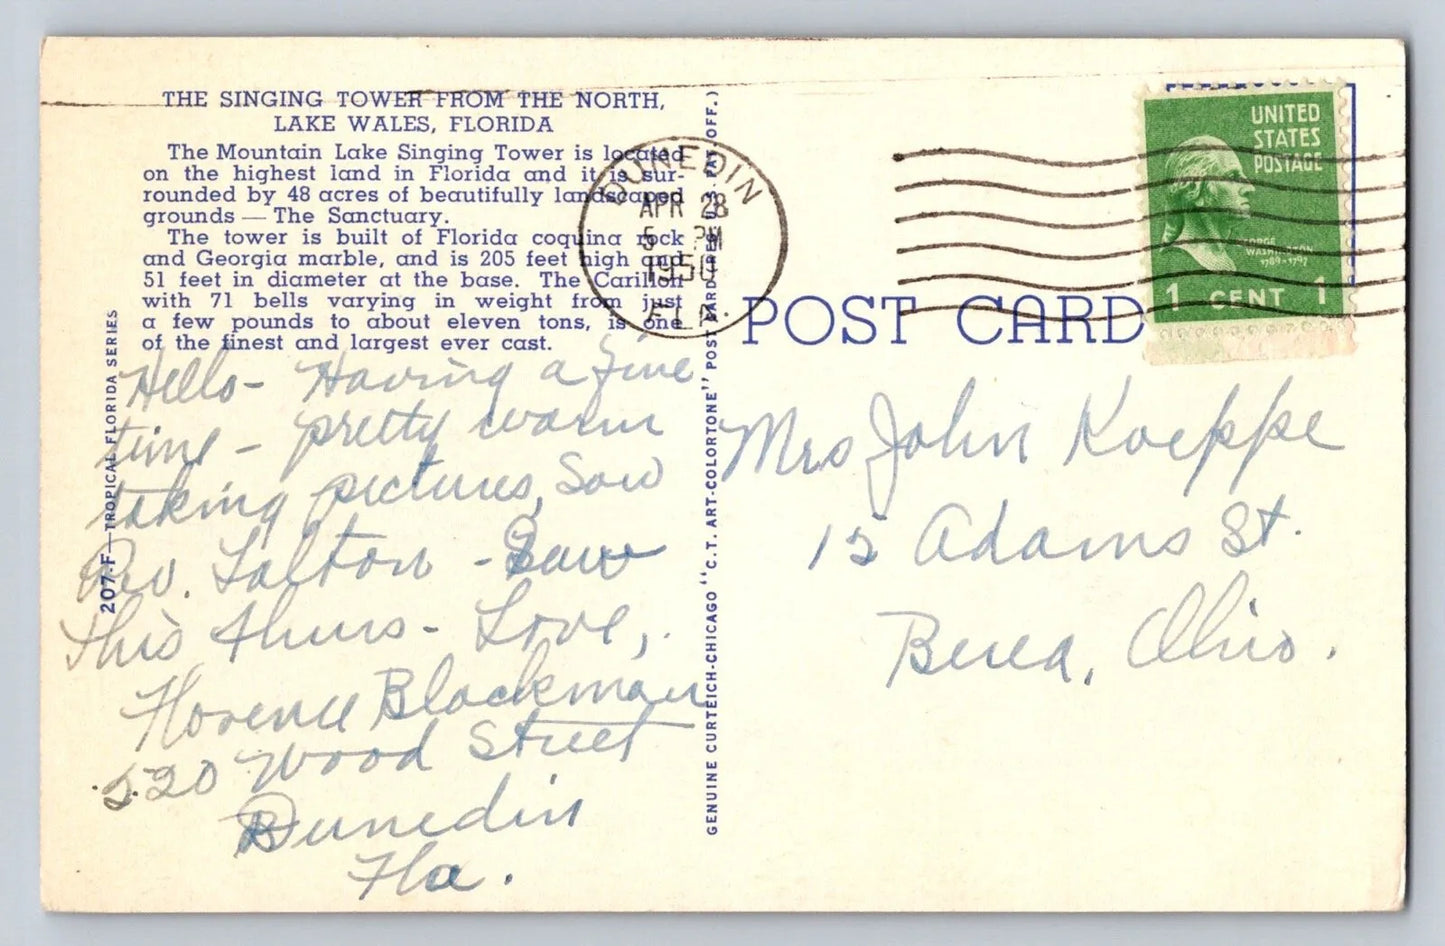 THE SINGING TOWER FROM THE NORTH,
LAKE WALES, FLORIDA
The Mountain Lake Singing Tower is located
on the highest land in Florida and it is sur-
rounded by 48 acres of beautifully landscaped
grounds — The Sanctuary.
The tower is built of Florida coquina rock
and Georgia marble, and is 205 feet high and
51 feet in diameter at the base. The Carillon
with 71 bells varying in weight from just
a few pounds to about eleven tons, is one
of the finest and largest ever cast.
207-F—TROPICAL FLORIDA SERIES
Hello- Having a fine
time - pretty warm
taking pictures, Saw
Rev. - Saw
this thurs- Love,
Florence Blackman
520 Wood Street
Dunedin
Fla.
GENUINE CURTEICH-CHICAGO "C.T. ART-COLORTONE" POST CARD (REG. U.S. PAT. OFF.)
DUNEDIN
APR 28
5 PM
1950
FLA.
POST CARD
UNITED
STATES
POSTAGE
GEORGE
WASHINGTON
1789-1797
1 CENT 1
Mrs John Koeppe
15 Adams St.
Berea, Ohio.